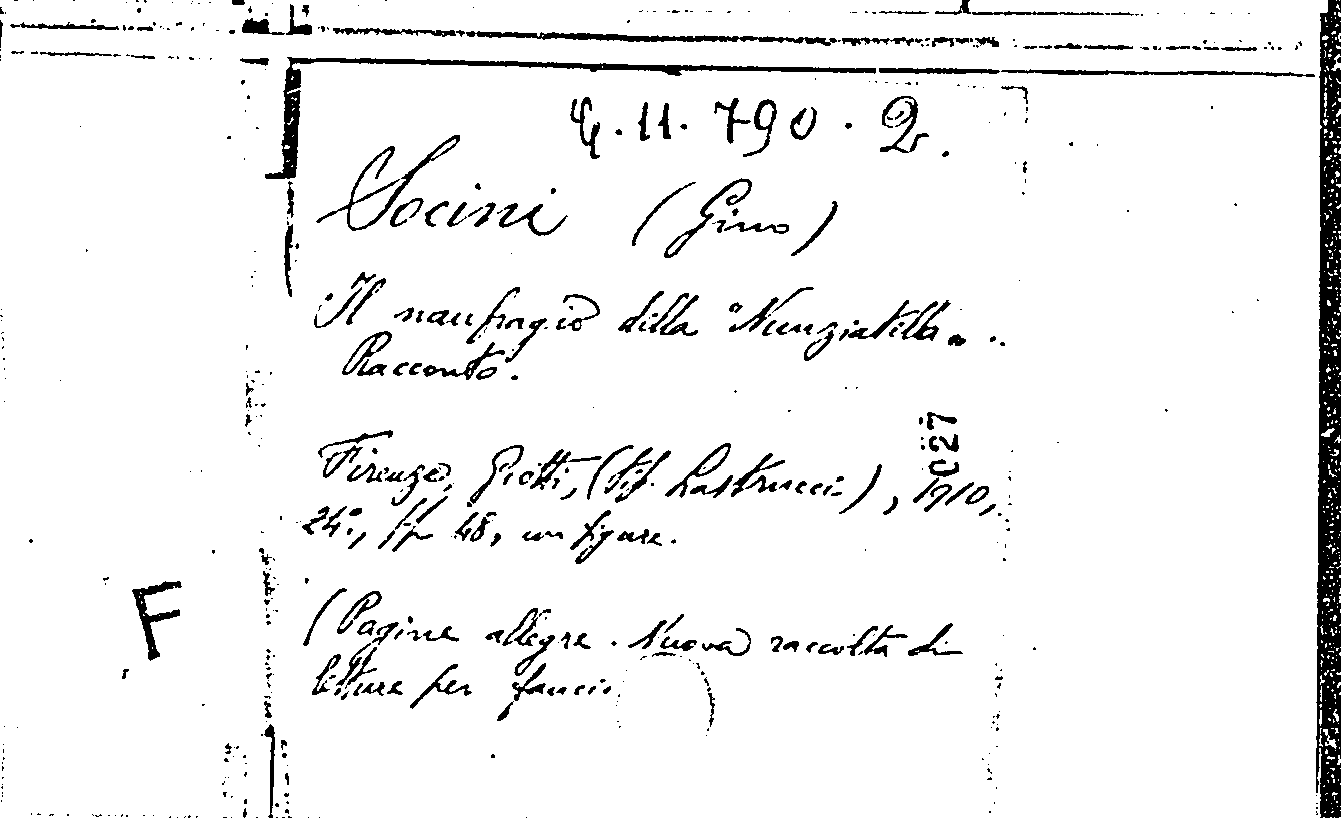 4.11.790.2.
Socini (Gino)
Il naufragio della "Nunziatella"..
Racconto.
Firenze, Giotti, (tip. Lastrucci), 1910,
24°, pp 48, con figure.
1027
(Pagine allegre. Nuova raccolta di
F
letture per fanci